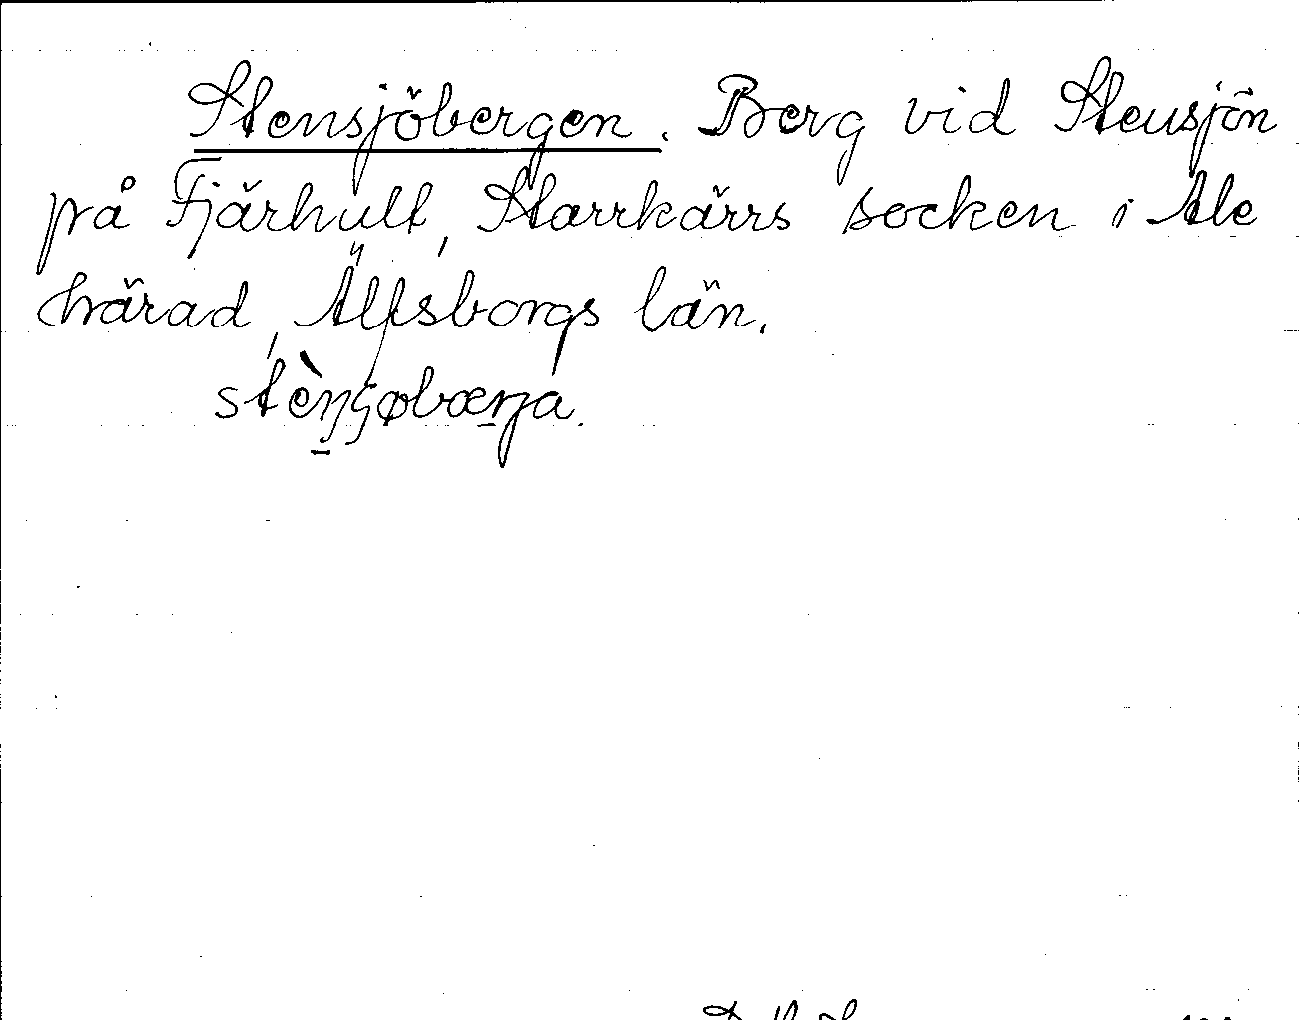 Stensjöbergen. Berg vid Stensjön
på Fjärhult, Starrkärrs socken i Ale
härad, Älfsborgs län.